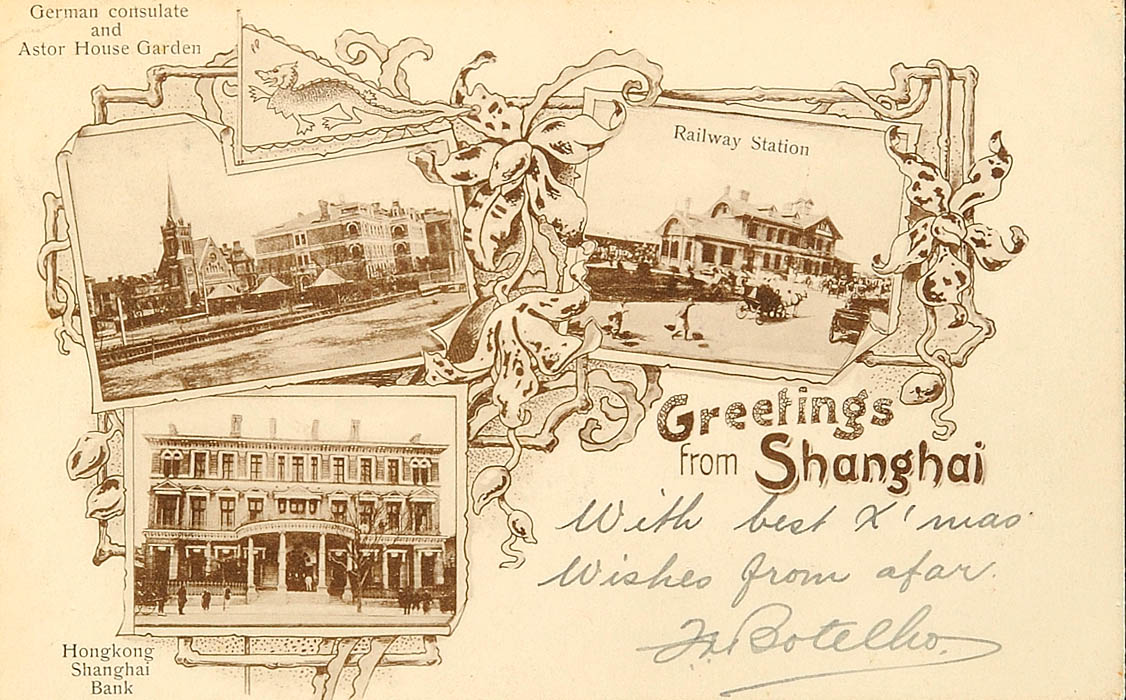 German consulate
and
Astor House Garden
Railway Station
Greetings
from Shanghai
With best X'mas
Wishes from afar.
Botelho.
Hongkong
Shanghai
Bank